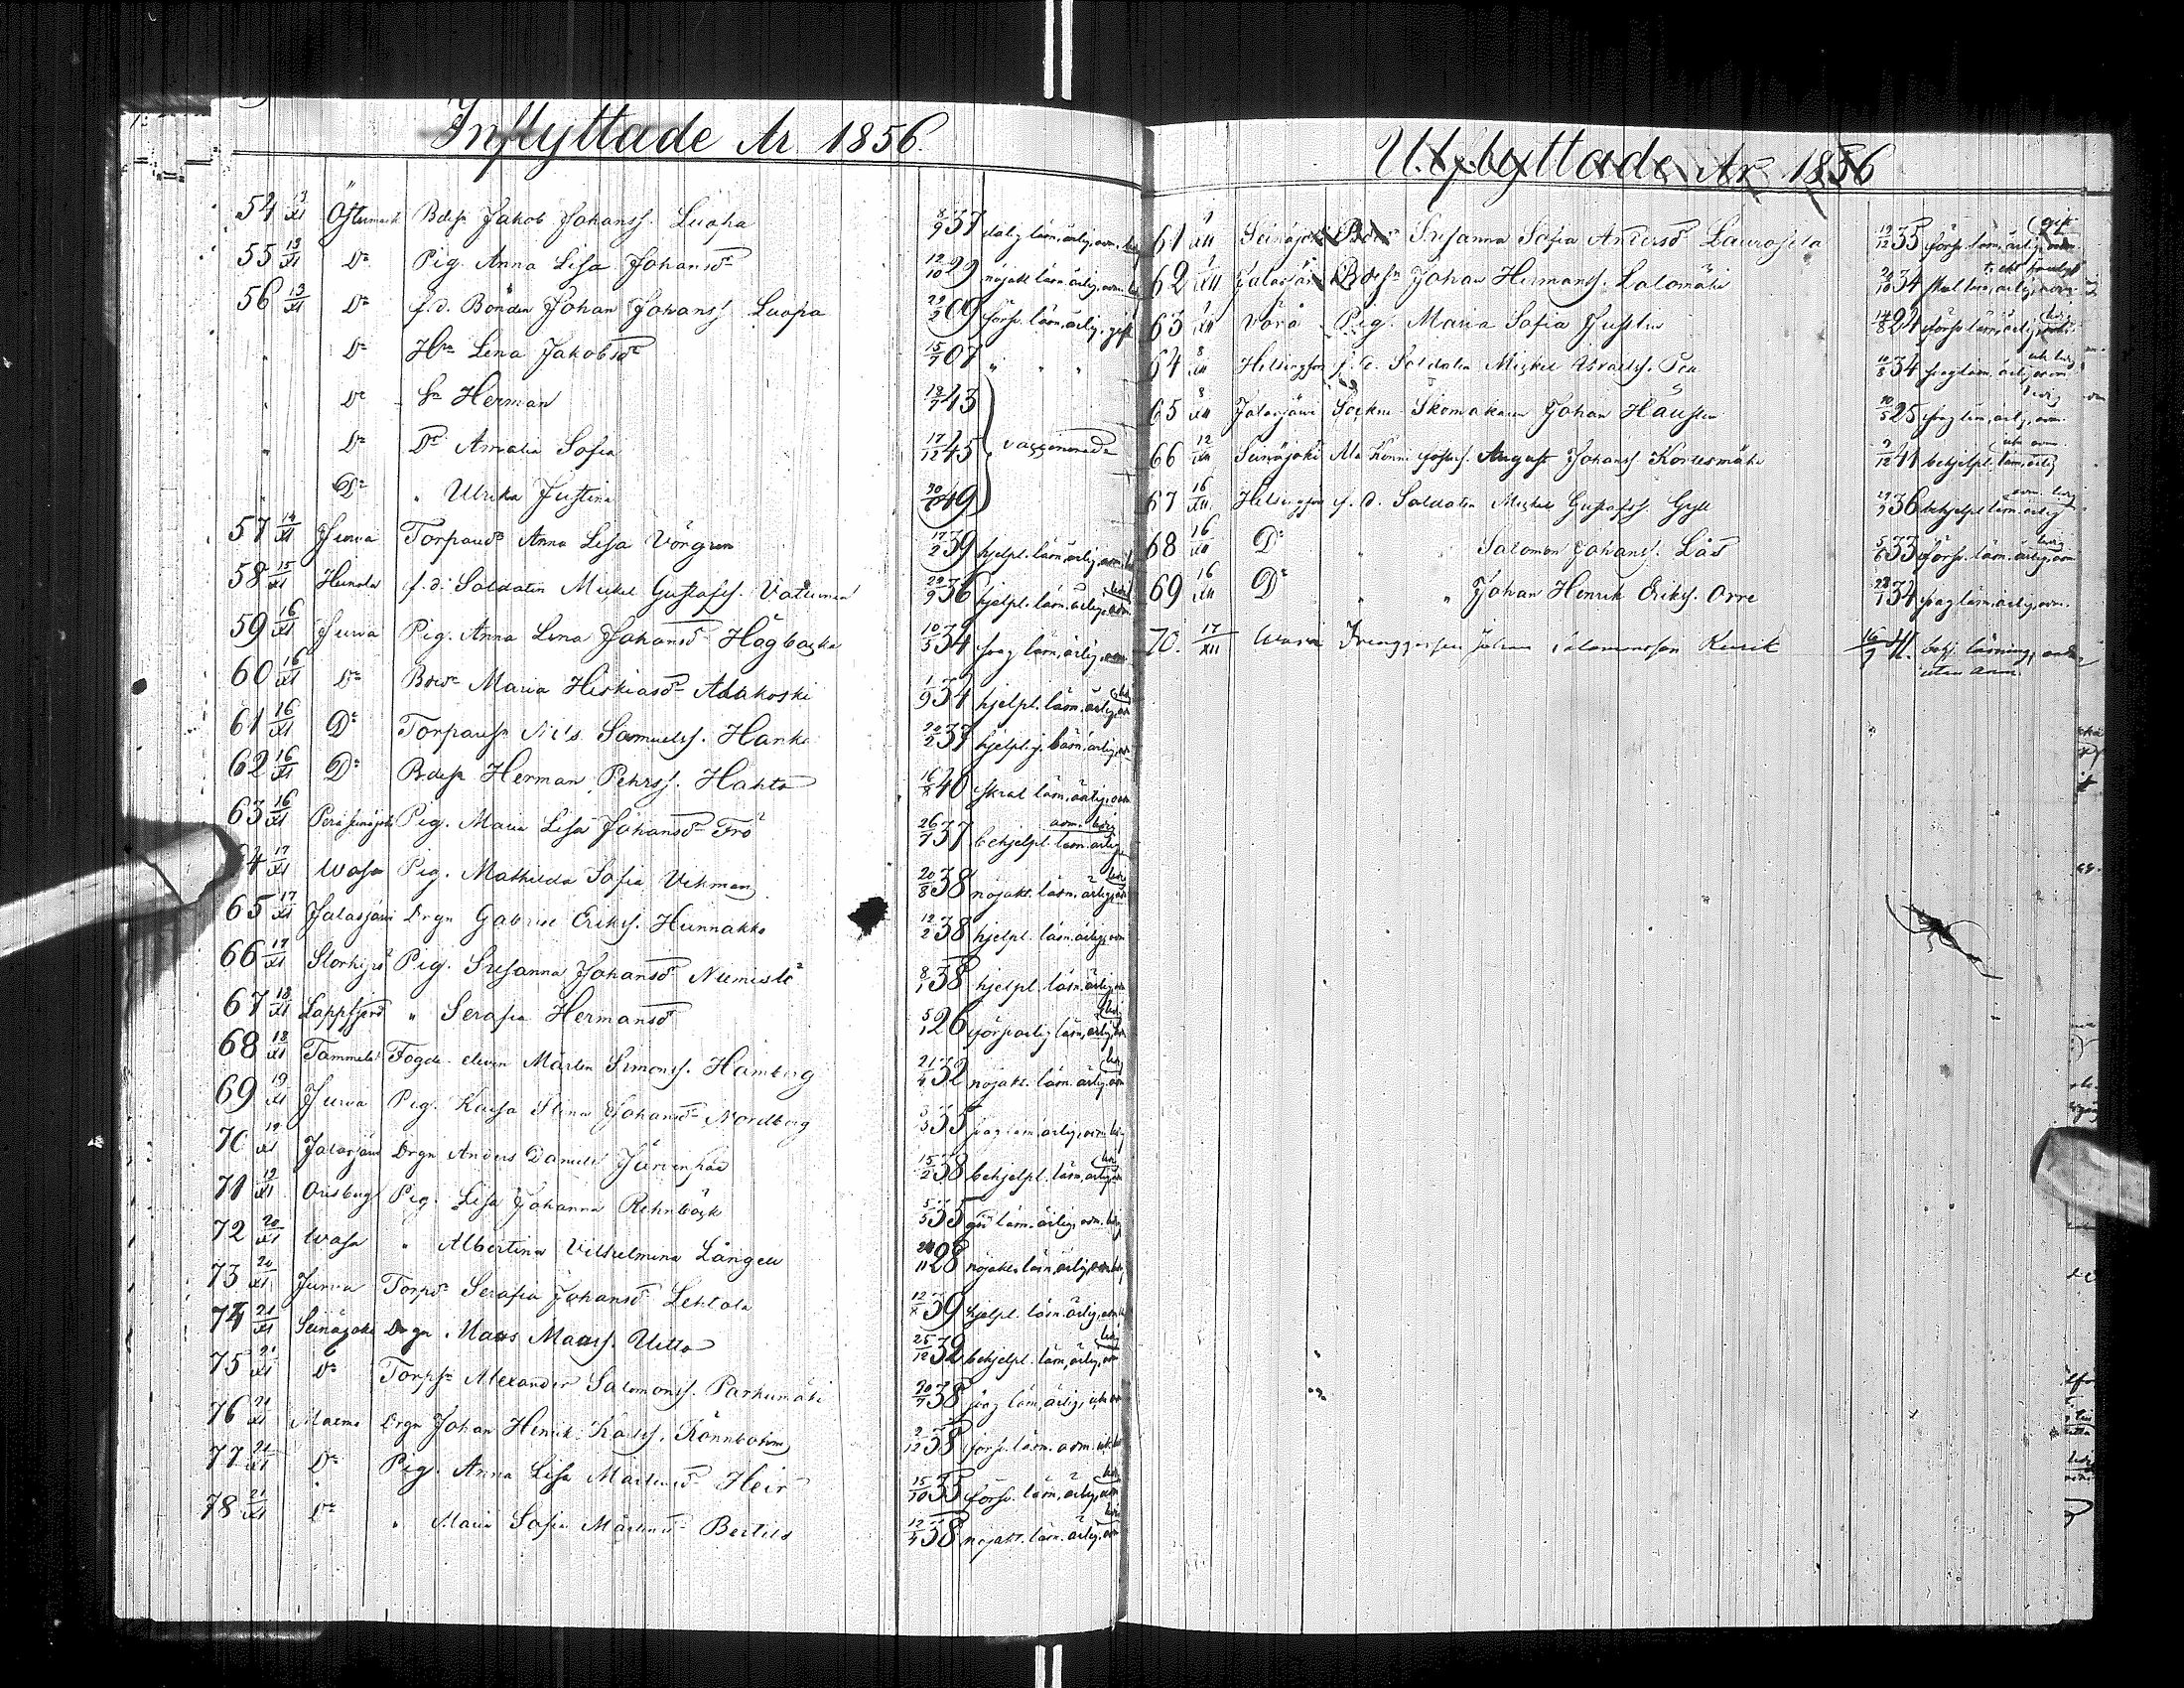 Inflyttade År 1856.
54 13/XI Östermark Bdesn Jakob Johanss. Luopa 8/9 37 dålig läsn. ärlig, adm. ledig
55 13/XI Do Pig. Anna Lisa Johansdr 12/10 29 nöjakt. läsn. ärlig, adm.
56 13/XI Do f.d. Bonden Johan Johanss. Luopa 09 försv. läsn. ärlig, gift
" Do Hu Lena Jakobsdr 15/7 07 " " "
" Do Sn Herman 43
" Do Dr Amalia Sofia 17/12 45 vaccinerade
" Do " Ulrika Justina 49
57 14/XI Jurva Torparedr Anna Lisa Vörgren 17/2 39 hjelpl. läsn. ärlig, adm.
58 15/XI f.d. Soldaten Mickel Gustafss. 29/9 36 hjelpl. läsn. ärlig, adm.
59 16/XI Jurva Pig. Anna Lena Johansdr Högbacka 10/5 34 svag läsn. ärlig, adm.
60 16/XI Do Bdr Maria Hiskiasdr Alakoski 1/9 34 hjelpl. läsn. ärlig
61 16/XI Do Torparesn Nils Samuelss. Hanka 37 hjelplig läsn. ärlig
62 16/XI Do Bdesn Herman Pehrss. Hahto 16/8 40 skral läsn. ärlig, adm.
63 16/XI Perä Seinäjoki Pig. Maria Lisa Johansdr Frö 26/7 37 behjelpl. läsn. ärlig adm. ledig
64 17/XI Wasa Pig. Mathilda Sofia Vikman 20/8 38 nöjakt. läsn. ärlig
65 17/XI Jalasjärvi Drgn Gabriel Eriks. Hunnakko 12/2 38 hjelpl. läsn. ärlig, adm
66 17/XI Storkyro Pig. Susanna Johansdr Niemistö 8/1 38 hjelpl. läsn. ärlig
67 18/XI Lappfjerd " Serafia Hermansdr 5/1 26 försvarlig läsn. ärlig
68 18/XI Fogde eleven Mårten Simonss. Hamberg 21/4 32 nöjakt. läsn. ärlig
69 19/XI Jurva Pig. Kaisa Stina Johansdr Nordberg 35 svag läsn. ärlig, adm. ledig
70 19/XI Jalasjärvi Drgn Anders Daniels Järvenpää 15/2 38 behjelpl. läsn. ärlig
71 19/XI Orisberg Pig. Lisa Johanna Rehnbäck 35 god läsn. ärlig, adm. ledig
72 20/XI Wasa " Albertina Vilhelmina Långell 28 nöjakt. läsn. ärlig
73 20/XI Jurva Torpdr Serafia Johansdr Lehtola 39 hjelpl. läsn. ärlig
74 21/XI Seinäjoki Drgn Maas Maass. Uitto 25/12 32 behjelpl. läsn. ärlig
75 21/XI Do Torpsn Alexander Salomonss. Parkumäki 20/7 38 svag läsn. ärlig
76 21/XI Malmö Drgn Johan Henrik Karlss. Rönnholm 2/12 38 försv. läsn. adm.
77 21/XI Do Pig. Anna Lisa Mårtensdr Heir 15/10 35 försv. läsn. ärlig
78 21/XI Do " Maria Sofia Mårtensdr Bertils 12/4 38 nöjakt. läsn. ärlig
Utflyttade År 1856
61 1/XII Seinäjoki Bdr Susanna Sofia Andersdr Laurosela 19/12 35 försv. läsn. ärlig, adm. gift
62 1/XII Jalasjärvi Bdesn Johan Hermanss. Lalomäki 34 skral läsn. ärlig
63 XII Vörå Pig. Maria Sofia Justlin 14/8 24 försv. läsn. ärlig ledig
64 8/XII Helsingfors f.d. Soldaten Mickel Israelss. Pen 10/8 34 svag läsn. ärlig adm. och ledig
65 8/XII Jalasjärvi Sockne Skomakaren Johan Hägglin 10/5 25 svag läsn. ärlig, adm. ledig
66 12/XII Seinäjoki August Johanss. Kortesmäki 41 behjelpl. läsn. ärlig
67 16/XII Helsingfors f.d. Soldaten Mickel Gustafss. Gyll 36 behjelpl. läsn. ärlig adm. ledig
68 16/XII Do " " Salomon Johanss. Lås 5/6 33 försv. läsn. ärlig, adm. ledig
69 16/XII Do " " Johan Henrik Eriks. Orre 28/1 34 svag läsn. ärlig, adm.
70. 17/XII Wasa Drenggossen Johan Salomonsson Renik 16/9 41. behj. läsning,
utan adm.